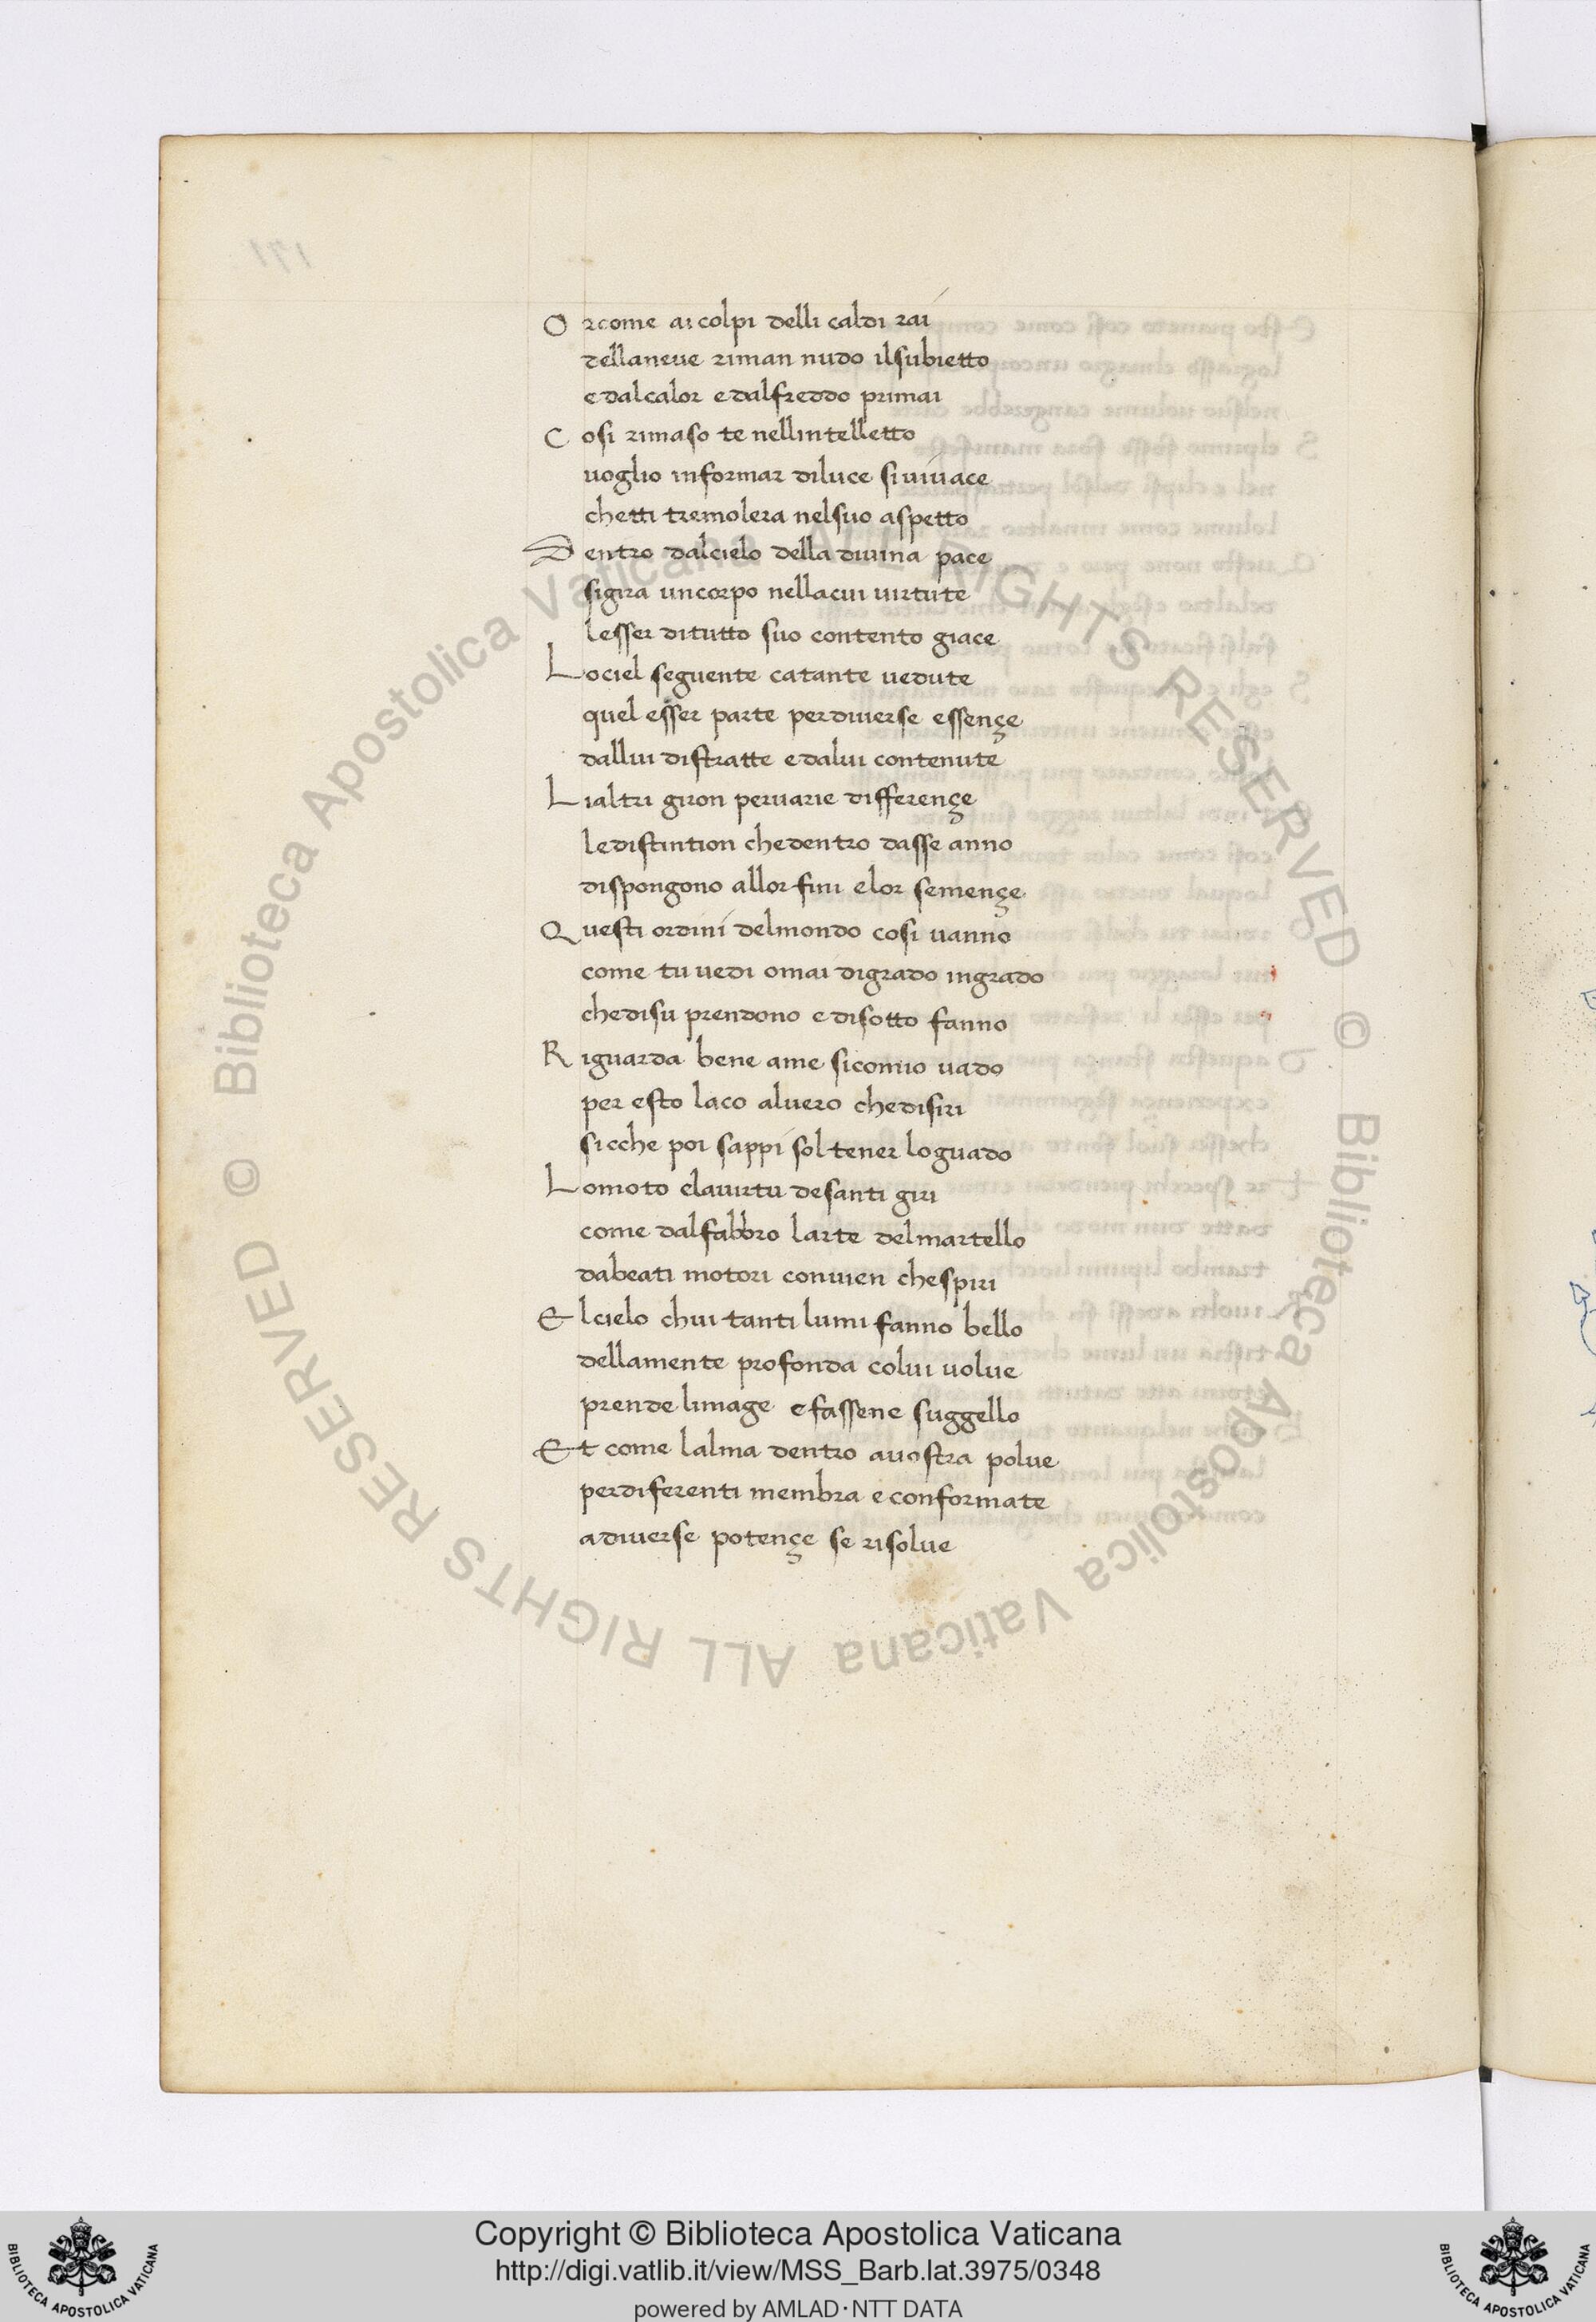 O rcome ai colpi delli caldi rai
dellaneue riman nudo ilsubietto
e dalcalor e dalfreddo primai
C osi rimaso te nellintelletto
uoglio informar diluce siuiuace
chetti tremolera nelsuo aspetto
D entro dalcielo della diuina pace
sigira uncorpo nellacui uirtute
lesser ditutto suo contento giace
L ociel seguente catante uedute
quel esser parte perdiuerse essençe
dallui distratte e dalui contenute
L ialtri giron peruarie differençe
ledistintion chedentro dasse anno
dispongono allor fini elor semençe
Q uesti ordini delmondo cosi uanno
come tu uedi omai digrado ingrado
chedisu prendono e disotto fanno
R iguarda bene ame sicomio uado
per esto laco aluero chedisiri
sicche poi sappi sol tener loguado
L omoto elauirtu desanti giri
come dalfabbro larte delmartello
dabeati motori conuien chespiri
E lcielo chui tanti lumi fanno bello
dellamente profonda colui uolue
prende limage e fassene suggello
E t come lalma dentro auostra polue
perdiferenti membra e conformate
adiuerse potençe se risolue
171
Copyright © Biblioteca Apostolica Vaticana
http://digi.vatlib.it/view/MSS_Barb.lat.3975/0348
powered by AMLAD·NTT DATA
BIBLIOTECA APOSTOLICA VATICANA
BIBLIOTECA APOSTOLICA VATICANA
© Biblioteca Apostolica Vaticana ALL RIGHTS RESERVED © Biblioteca Apostolica Vaticana ALL RIGHTS RESERVED